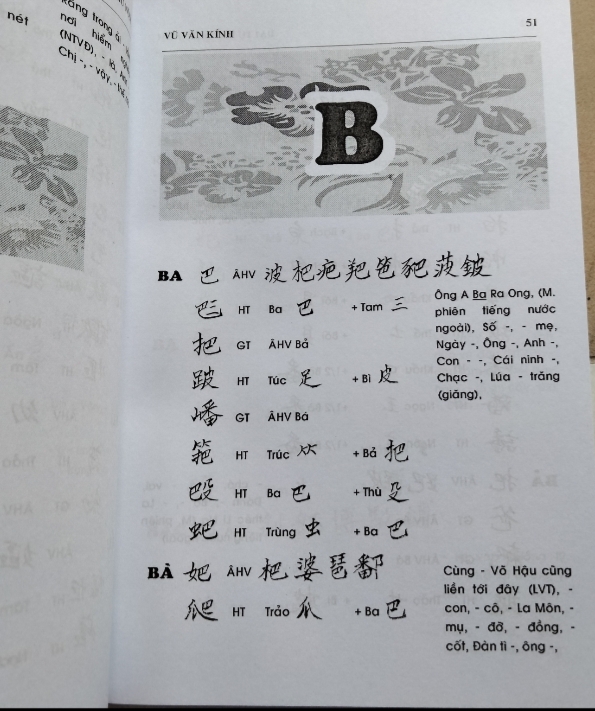 nét
Rằng trong ái
nơi hiểm
(NTVD), - lỗ,
Chị -, - vây,
VŨ VĂN KÍNH
51
B
BA 巴 ÂHV 波 杷 疤 羓 笆 豝 菠 鈹
HT Ba 巴 + Tam 三
把 GT ÂHV Bả
跛 HT Túc 足 + Bì 皮
嶓 GT ÂHV Bá
筢 HT Trúc + Bả 把
HT Ba 巴 + Thù 殳
蚆 HT Trùng 虫 + Ba 巴
Ông A Ba Ra Ong, (M.
phiên tiếng nước
ngoài), Số -, - mẹ,
Ngày -, Ông -, Anh -,
Con - -, Cái nình -,
Chạc -, Lúa - trăng
(giăng),
BÀ 妑 ÂHV 杷 婆 琶 鄱
爬 HT Trảo 爪 + Ba 巴
Cùng - Võ Hậu cũng
liền tới đây (LVT), -
con, - cô, - La Môn, -
mụ, - đỡ, - đồng, -
cốt, Đàn tì -, ông -,